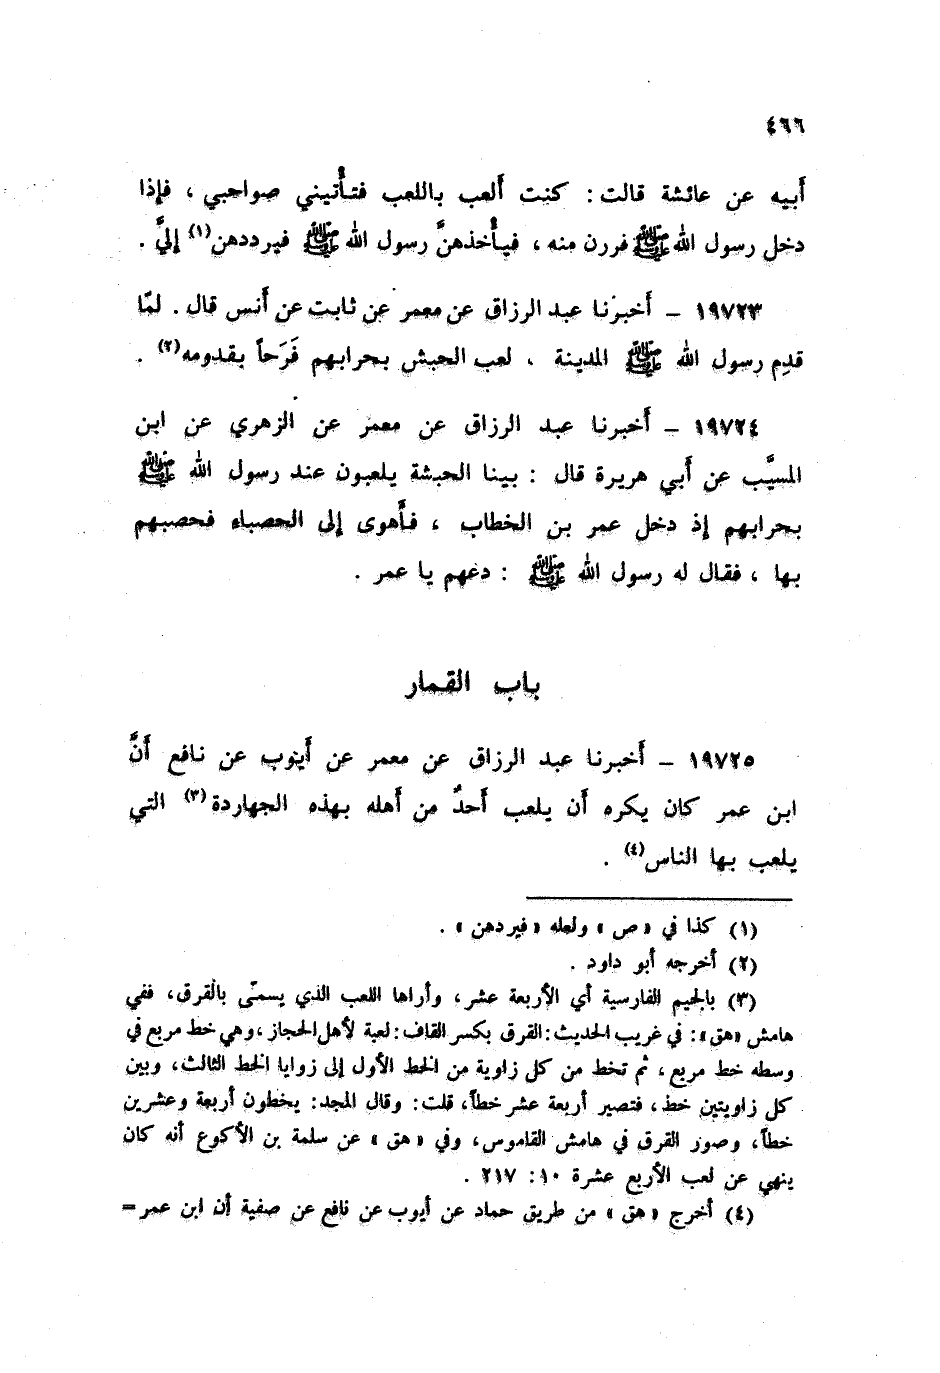 ٤٦٦
أبيه عن عائشة قالت : كنت ألعب باللعب فتأتيني صواحبي ، فإذا
دخل رسول الله ﷺ فررن منه ، فيأخذهنَّ رسول الله ﷺ فيرددهن(١) إليَّ .
١٩٧٢٣ – أخبرنا عبد الرزاق عن معمر عن ثابت عن أنس قال . لمّا
قدِم رسول الله ﷺ المدينة ، لعب الحبش بحرابهم فَرَحاً بقدومه(٢) .
١٩٧٢٤ – أخبرنا عبد الرزاق عن معمر عن الزهري عن ابن
المسيَّب عن أبي هريرة قال : بينا الحبشة يلعبون عند رسول الله ﷺ
بحرابهم إذ دخل عمر بن الخطاب ، فأهوى إلى الحصباء فحصبهم
بها ، فقال له رسول الله ﷺ : دعهم يا عمر .
باب القمار
١٩٧٢٥ – أخبرنا عبد الرزاق عن معمر عن أيوب عن نافع أنَّ
ابن عمر كان يكره أن يلعب أحدٌ من أهله بهذه الجهاردة(٣) التي
يلعب بها الناس(٤) .
(١) كذا في « ص » ولعله « فيردهن » .
(٢) أخرجه أبو داود .
(٣) بالجيم الفارسية أي الأربعة عشر ، وأراها اللعب الذي يسمّى بالقرق ، ففي
هامش « هق » : في غريب الحديث : القرق بكسر القاف : لعبة لأهل الحجاز ، وهي خط مربع في
وسطه خط مربع ، ثم تخط من كل زاوية من الخط الأول إلى زوايا الخط الثالث ، وبين
كل زاويتين خط ، فتصير أربعة عشر خطاً ، قلت : وقال المجد : يخطون أربعة وعشرين
خطاً ، وصور القرق في هامش القاموس ، وفي « هق » عن سلمة بن الأكوع أنه كان
ينهي عن لعب الأربع عشرة ١٠ : ٢١٧ .
(٤) أخرج « هق » من طريق حماد عن أيوب عن نافع عن صفية أن ابن عمر =